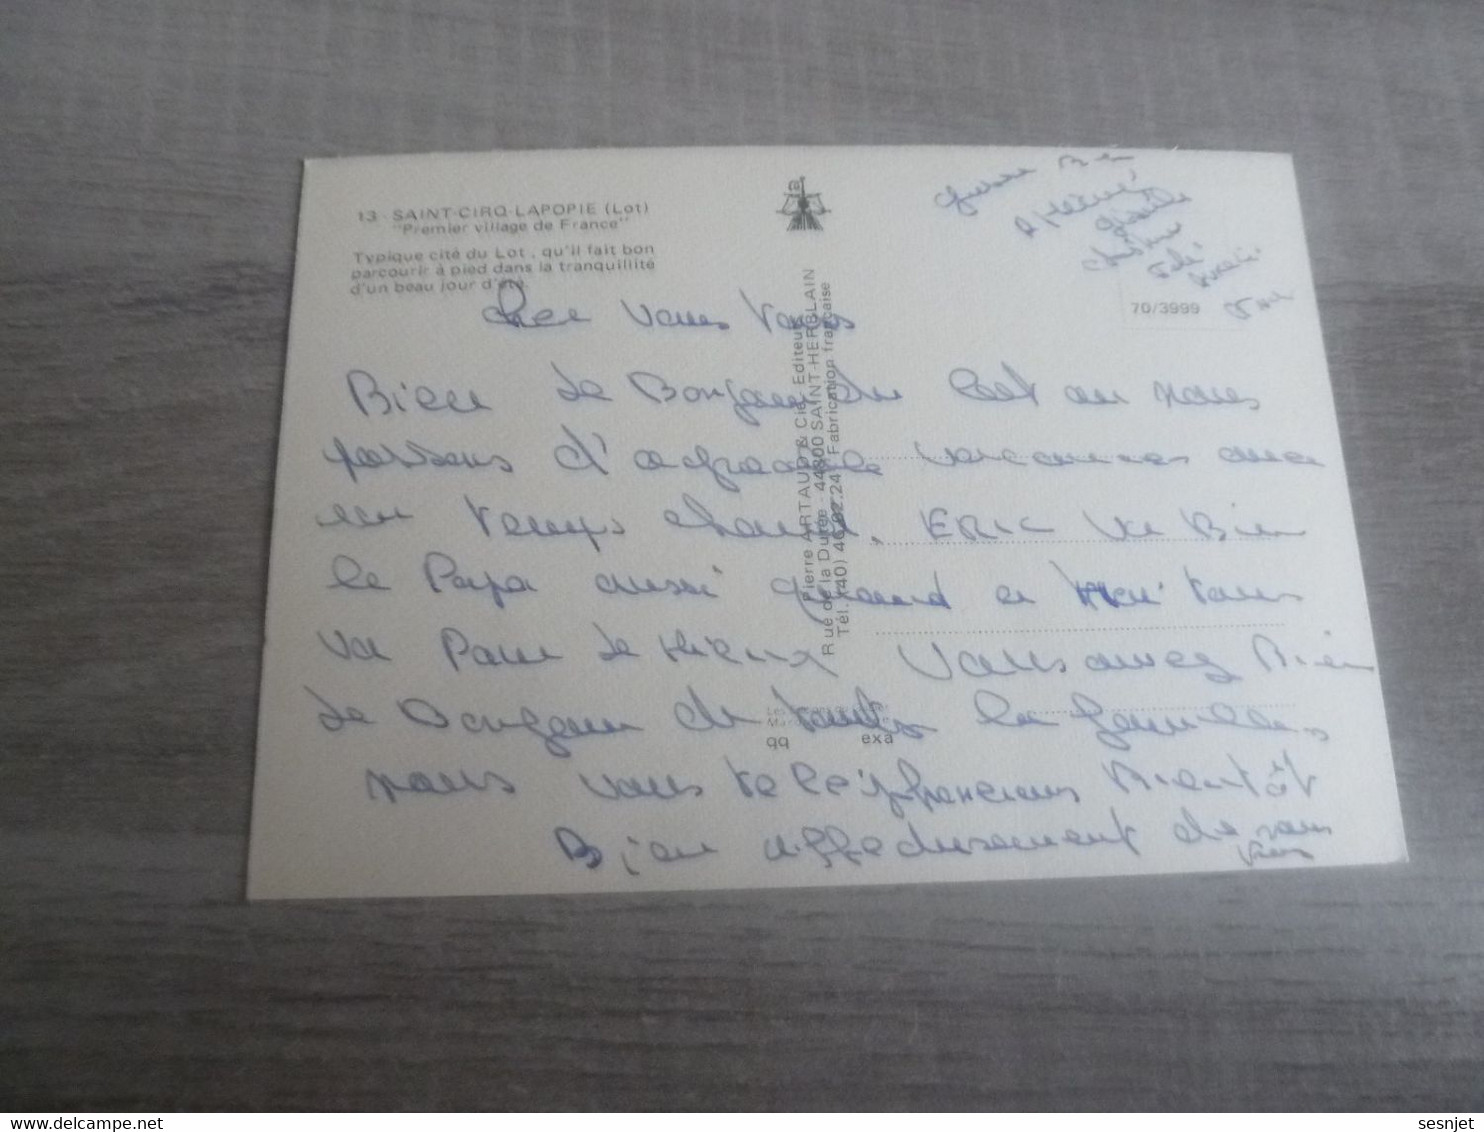 13 - SAINT-CIRQ-LAPOPIE (Lot)
"Premier village de France"
Typique cité du Lot, qu'il fait bon
parcourir à pied dans la tranquillité
d'un beau jour d'été.
70/3999
Pierre ARTAUD & Cie, Editeurs
Rue de la Durée - 44800 SAINT-HERBLAIN
Fabrication française
qq exa
cher vous tous
Bien de Bonjour du Lot ou nous
passons d'agréable vacances avec
un temps chaud. ERIC va Bien
le Papa aussi quand a moi tous
va pour le mieux vous avez Bien
le Bonjour de toutes la famille,
nous vous téléphonerons Bientôt
Bien affectueusement de nous
tous
sesnjet